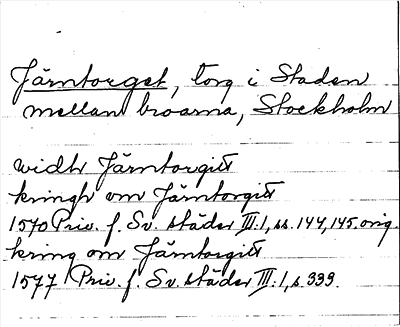 Järntorget, torg i Staden
mellan broarna, Stockholm
widh Järntorgit
kringh om Järntorgit
1570 Priv. f. Sv. städer III:1, ss. 144, 145. orig.
kring om Järntorgit
1577 Priv. f. Sv. städer III:1, s. 333.